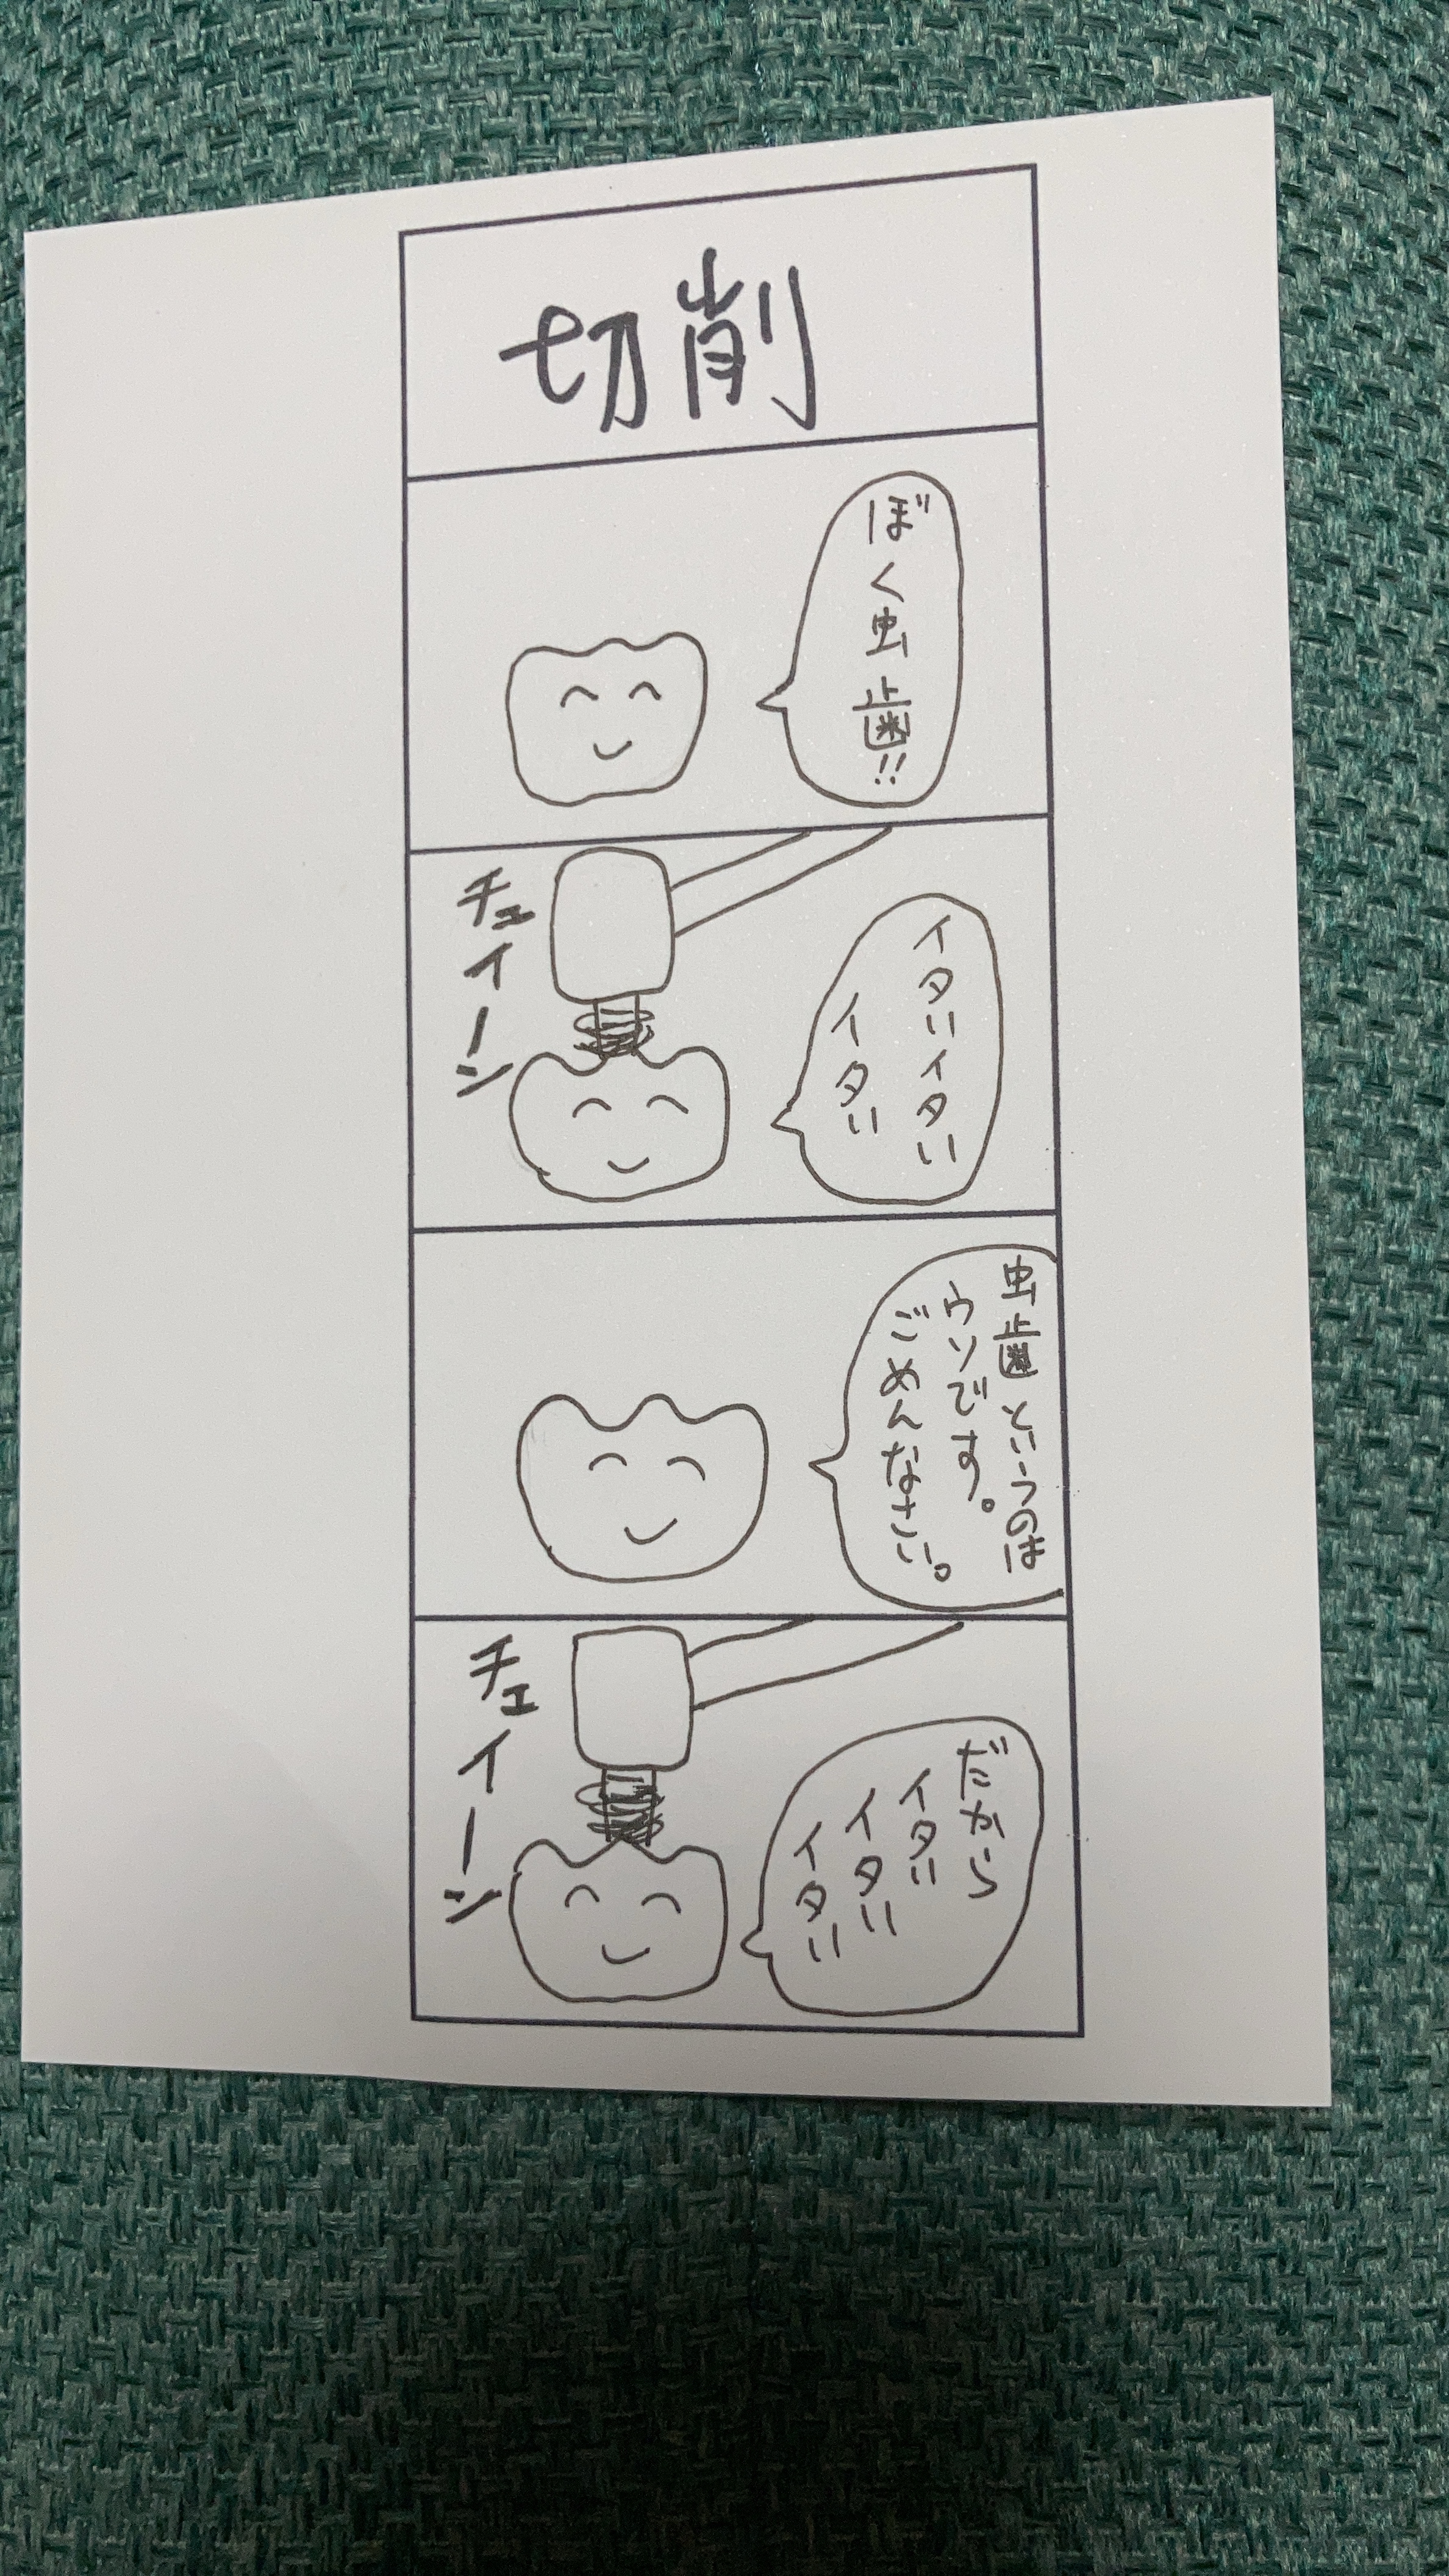 切削
ぼく虫歯!!
チェイーン
イタいイタい
イタい
虫歯というのは
ウソです。
ごめんなさい。
チェイーン
だから
イタい
イタい
イタい